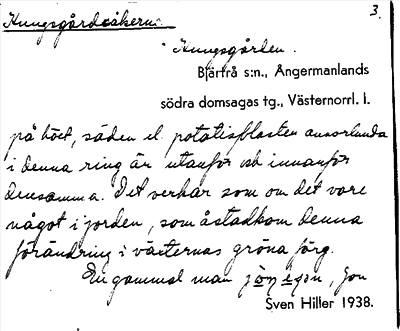 Kungsgårdsåkern. 3.
Kungsgården.
Bjärtrå s:n., Ångermanlands
södra domsagas tg., Västernorrl. l.
på höet, säden el. potatisblasten annorlunda
i denna ring än utanför och innanför
densamma. Det verkar som om det vore
något i jorden, som åstadkom denna
förändring i växternas gröna färg.
En gammal man
Sven Hiller 1938.